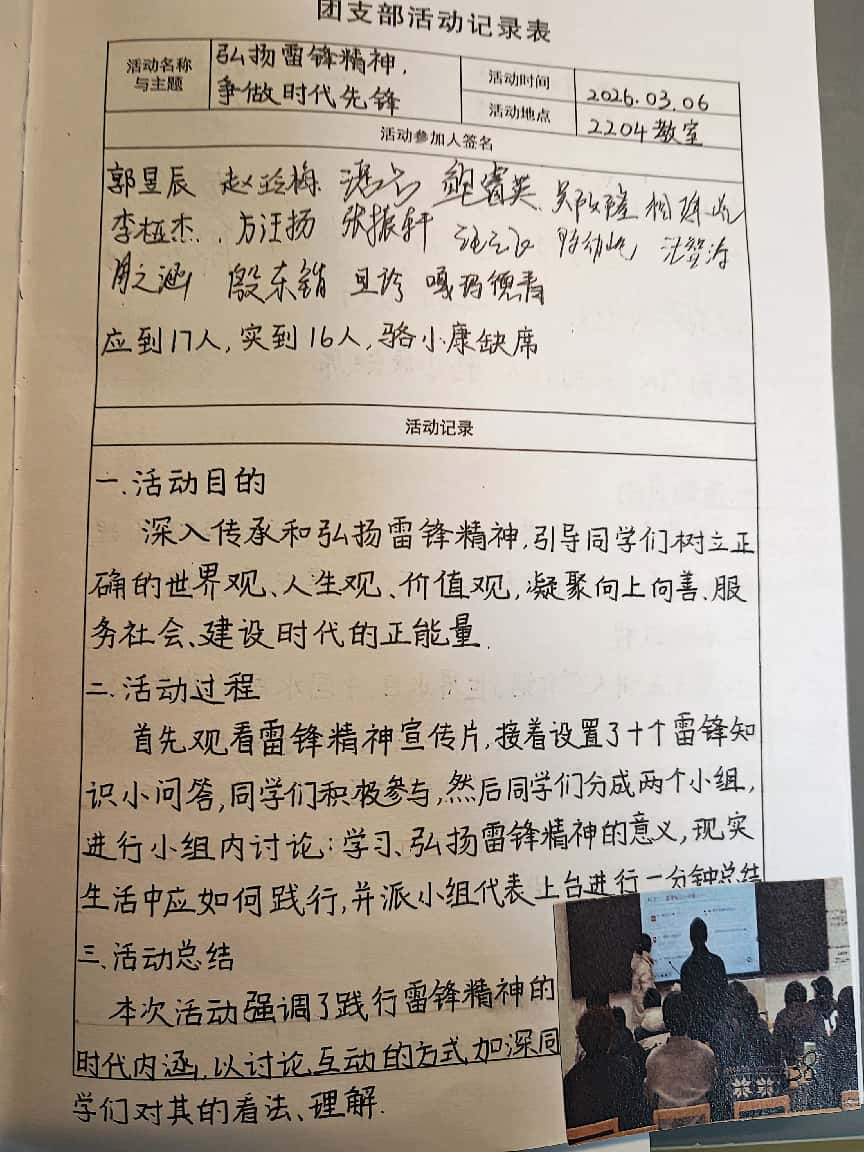 团支部活动记录表
活动名称与主题
弘扬雷锋精神,
争做时代先锋
活动时间
2026.03.06
活动地点
2204教室
活动参加人签名
郭昱辰 赵玲梅 鲍睿英
李桠杰 方汪扬 张振轩
周之涵 殷东销 旦珍 嘎玛德青
应到17人,实到16人,骆小康缺席
活动记录
一.活动目的
深入传承和弘扬雷锋精神,引导同学们树立正
确的世界观、人生观、价值观,凝聚向上向善、服
务社会、建设时代的正能量.
二.活动过程
首先观看雷锋精神宣传片,接着设置了十个雷锋知
识小问答,同学们积极参与,然后同学们分成两个小组,
进行小组内讨论:学习、弘扬雷锋精神的意义,现实
生活中应如何践行,并派小组代表上台进行一分钟总结
三.活动总结
本次活动强调了践行雷锋精神的
时代内涵,以讨论互动的方式加深同
学们对其的看法、理解.